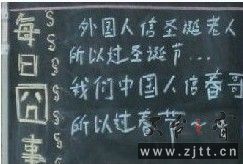 每日囧事
外国人信圣诞老人
所以过圣诞节...
我们中国人信春哥
所以过春节...
www.zjtt.cn